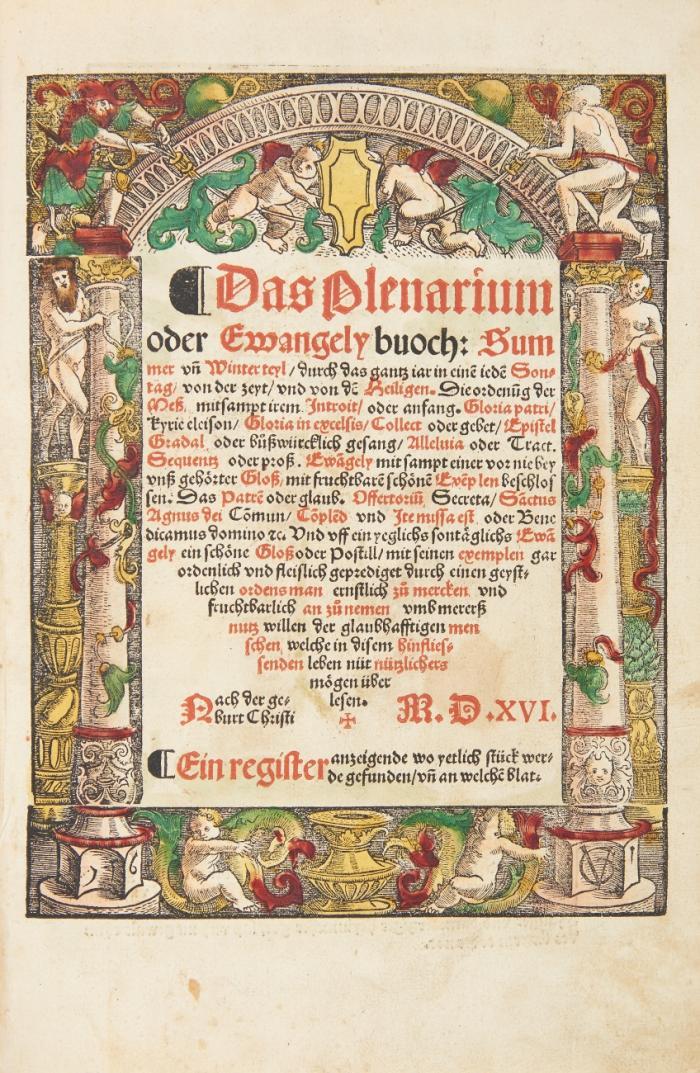 ¶ Das Plenarium
oder Ewangely buoch: Sum
mer vñ Winter teyl / durch das gantz iar in einē iedē Son⸗
tag / von der zeyt / vnd von dē Heiligen. Die ordenūg der
Meß, mitsampt irem Introit / oder anfang. Gloria patri /
Kyrie eleison / Gloria in excelsis / Collect oder gebet / Epistel
Gradal, oder bůßwürcklich gesang / Alleluia oder Tract.
Sequentz oder proß. Ewāgely mit sampt einer vor nie bey
vnß gehörter Gloß / mit fruchtbarē schönē Exēp len beschlos
sen. Das Patrē oder glaub. Offertoriū, Secreta / Sāctus
Agnus dei Cōmun / Cōplēd vnd Ite missa est, oder Bene
dicamus domino ꝛc. Vnd vff ein yeglichs sontäglichs Ewā
gely ein schöne Gloß oder Postill / mit seinen exemplen gar
ordenlich vnd fleislich geprediget durch einen geyst⸗
lichen ordens man ernstlich zů mercken vnd
fruchtbarlich an zů nemen vmb mererß
nutz willen der glaubhafftigen men
schen, welche in disem hinflies⸗
senden leben nüt nützlichers
mögen über
lesen.
Nach der ge⸗
burt Christi
✠ M. D .XVI.
¶ Ein register anzeigende wo yetlich stück wer⸗
de gefunden / vñ an welchē blat.
V